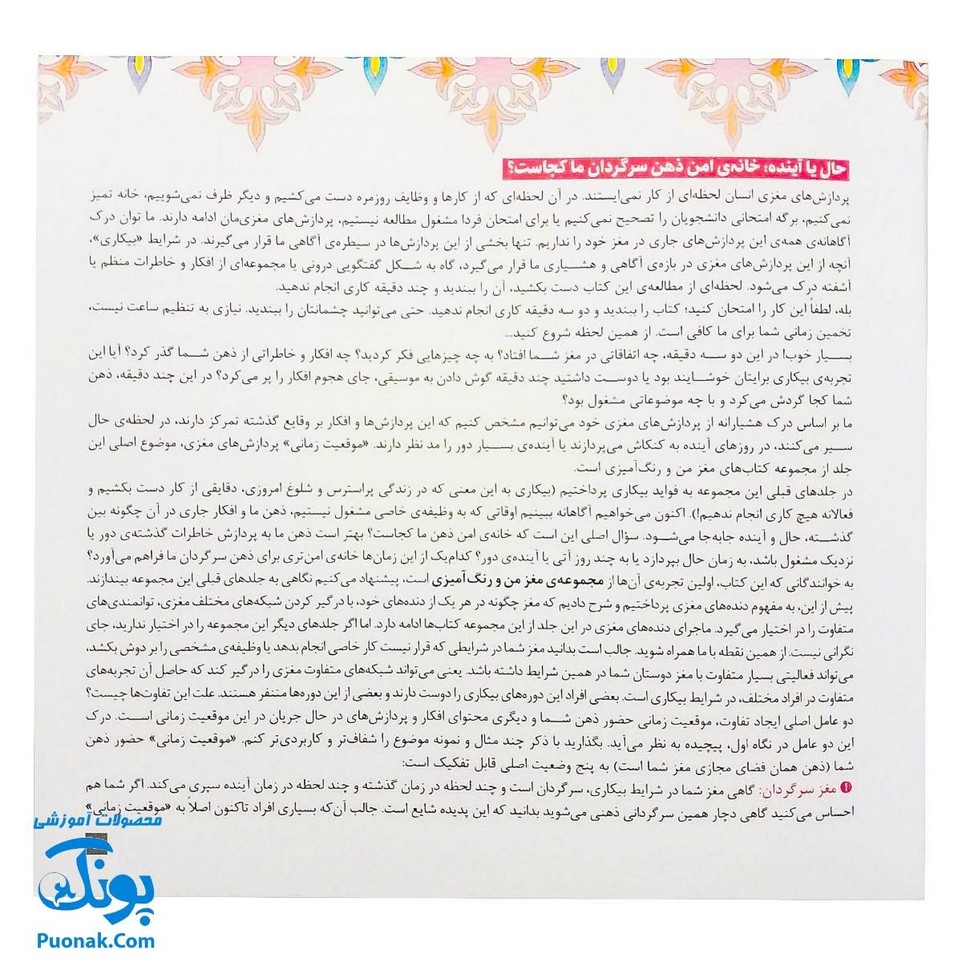 حال یا آینده، خانه‌ی امن ذهن سرگردان ما کجاست؟
پردازش‌های مغزی انسان لحظه‌ای از کار نمی‌ایستند. در آن لحظه‌ای که از کارها و وظایف روزمره دست می‌کشیم و دیگر ظرف نمی‌شوییم، خانه تمیز
نمی‌کنیم، برگه امتحانی دانشجویان را تصحیح نمی‌کنیم یا برای امتحان فردا مشغول مطالعه نیستیم، پردازش‌های مغزی‌مان ادامه دارند. ما توان درک
آگاهانه‌ی همه‌ی این پردازش‌های جاری در مغز خود را نداریم. تنها بخشی از این پردازش‌ها در سیطره‌ی آگاهی ما قرار می‌گیرند. در شرایط «بیکاری»،
آنچه از این پردازش‌های مغزی در بازه‌ی آگاهی و هشیاری ما قرار می‌گیرد، گاه به شکل گفتگویی درونی یا مجموعه‌ای از افکار و خاطرات منظم یا
آشفته درک می‌شود. لحظه‌ای از مطالعه‌ی این کتاب دست بکشید، آن را ببندید و چند دقیقه کاری انجام ندهید.
بله، لطفاً این کار را امتحان کنید؛ کتاب را ببندید و دو سه دقیقه کاری انجام ندهید. حتی می‌توانید چشمانتان را ببندید. نیازی به تنظیم ساعت نیست،
تخمین زمانی شما برای ما کافی است. از همین لحظه شروع کنید...
بسیار خوب! در این دو سه دقیقه، چه اتفاقاتی در مغز شما افتاد؟ به چه چیزهایی فکر کردید؟ چه افکار و خاطراتی از ذهن شما گذر کرد؟ آیا این
تجربه‌ی بیکاری برایتان خوشایند بود یا دوست داشتید چند دقیقه گوش دادن به موسیقی، جای هجوم افکار را پر می‌کرد؟ در این چند دقیقه، ذهن
شما کجا گردش می‌کرد و با چه موضوعاتی مشغول بود؟
ما بر اساس درک هشیارانه از پردازش‌های مغزی خود می‌توانیم مشخص کنیم که این پردازش‌ها و افکار بر وقایع گذشته تمرکز دارند، در لحظه‌ی حال
سیر می‌کنند، در روزهای آینده به کنکاش می‌پردازند یا آینده‌ی بسیار دور را مد نظر دارند. «موقعیت زمانی» پردازش‌های مغزی، موضوع اصلی این
جلد از مجموعه کتاب‌های مغز من و رنگ‌آمیزی است.
در جلدهای قبلی این مجموعه به فواید بیکاری پرداختیم (بیکاری به این معنی که در زندگی پراسترس و شلوغ امروزی، دقایقی از کار دست بکشیم و
فعالانه هیچ کاری انجام ندهیم!). اکنون می‌خواهیم آگاهانه ببینیم اوقاتی که به وظیفه‌ی خاصی مشغول نیستیم، ذهن ما و افکار جاری در آن چگونه بین
گذشته، حال و آینده جابه‌جا می‌شود. سؤال اصلی این است که خانه‌ی امن ذهن ما کجاست؟ بهتر است ذهن ما به پردازش خاطرات گذشته‌ی دور یا
نزدیک مشغول باشد، به زمان حال بپردازد یا به چند روز آتی یا آینده‌ی دور؟ کدام‌یک از این زمان‌ها خانه‌ی امن‌تری برای ذهن سرگردان ما فراهم می‌آورد؟
به خوانندگانی که این کتاب، اولین تجربه‌ی آن‌ها از مجموعه‌ی مغز من و رنگ‌آمیزی است، پیشنهاد می‌کنیم نگاهی به جلدهای قبلی این مجموعه بیندازند.
پیش از این، به مفهوم دنده‌های مغزی پرداختیم و شرح دادیم که مغز چگونه در هر یک از دنده‌های خود، با درگیر کردن شبکه‌های مختلف مغزی، توانمندی‌های
متفاوت را در اختیار می‌گیرد. ماجرای دنده‌های مغزی در این جلد از این مجموعه کتاب‌ها ادامه دارد. اما اگر جلدهای دیگر این مجموعه را در اختیار ندارید، جای
نگرانی نیست. از همین نقطه با ما همراه شوید. جالب است بدانید مغز شما در شرایطی که قرار نیست کار خاصی انجام بدهد یا وظیفه‌ی مشخصی را بر دوش بکشد،
می‌تواند فعالیتی بسیار متفاوت با مغز دوستان شما در همین شرایط داشته باشد. یعنی می‌تواند شبکه‌های متفاوت مغزی را درگیر کند که حاصل آن تجربه‌های
متفاوت در افراد مختلف، در شرایط بیکاری است. بعضی افراد این دوره‌های بیکاری را دوست دارند و بعضی از این دوره‌ها متنفر هستند. علت این تفاوت‌ها چیست؟
دو عامل اصلی ایجاد تفاوت، موقعیت زمانی حضور ذهن شما و دیگری محتوای افکار و پردازش‌های در حال جریان در این موقعیت زمانی است. درک
این دو عامل در نگاه اول، پیچیده به نظر می‌آید. بگذارید با ذکر چند مثال و نمونه موضوع را شفاف‌تر و کاربردی‌تر کنم. «موقعیت زمانی» حضور ذهن
شما (ذهن همان فضای مجازی مغز شما است) به پنج وضعیت اصلی قابل تفکیک است:
۱ مغز سرگردان: گاهی مغز شما در شرایط بیکاری، سرگردان است و چند لحظه در زمان گذشته و چند لحظه در زمان آینده سپری می‌کند. اگر شما هم
احساس می‌کنید گاهی دچار همین سرگردانی ذهنی می‌شوید بدانید که این پدیده شایع است. جالب آن‌که بسیاری افراد تاکنون اصلاً به «موقعیت زمانی»
محصولات آموزشی
پونک
Puonak.Com